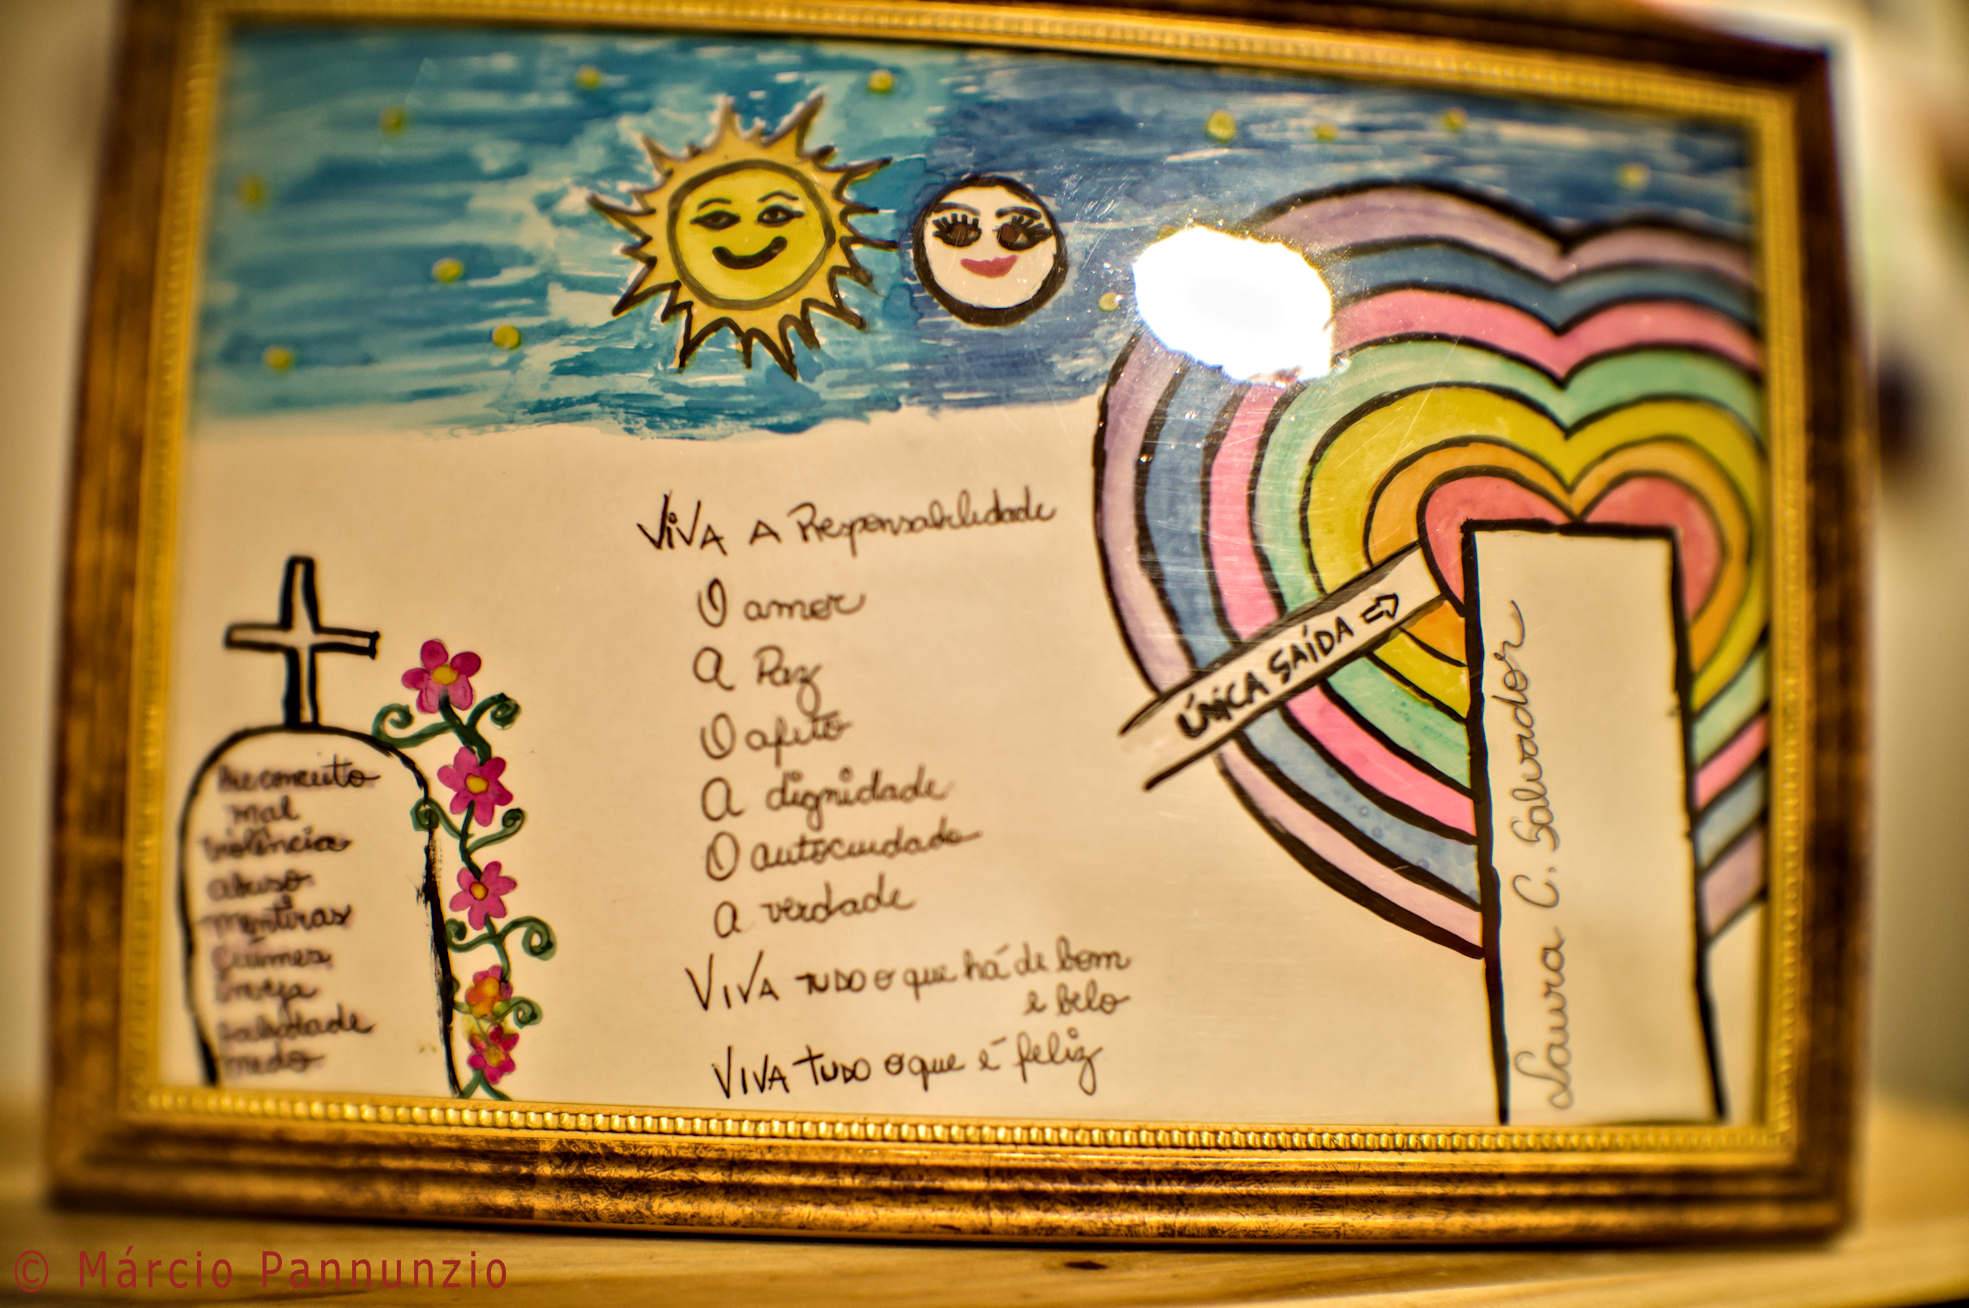 VIVA A Responsabilidade
O amor
A Paz
O afeto
A dignidade
O autocuidado
A verdade
VIVA TUDO o que há de bom
e belo
VIVA TUDO o que é feliz
Preconceito
mal
violência
abuso
mentiras
ciúmes
inveja
falsidade
medo
ÚNICA SAÍDA ⇨
Laura C. Salvador
© Márcio Pannunzio